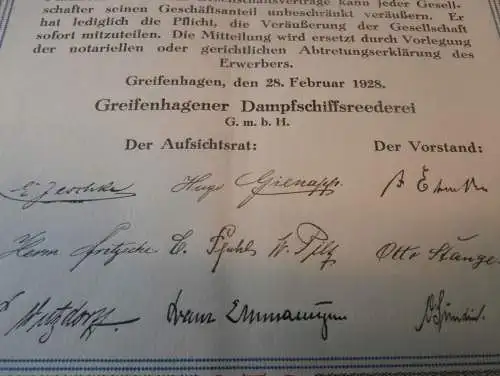 kann jeder Gesell-
schafter seinen Geschäftsanteil unbeschränkt veräußern. Er
hat lediglich die Pflicht, die Veräußerung der Gesellschaft
sofort mitzuteilen. Die Mitteilung wird ersetzt durch Vorlegung
der notariellen oder gerichtlichen Abtretungserklärung des
Erwerbers.
Greifenhagen, den 28. Februar 1928.
Greifenhagener Dampfschiffsreederei
G. m. b. H.
Der Aufsichtsrat: Der Vorstand:
E. Jeschke Hugo Gienapp.
Herm Fritzsche Otto Stange
Witzdorff. Franz